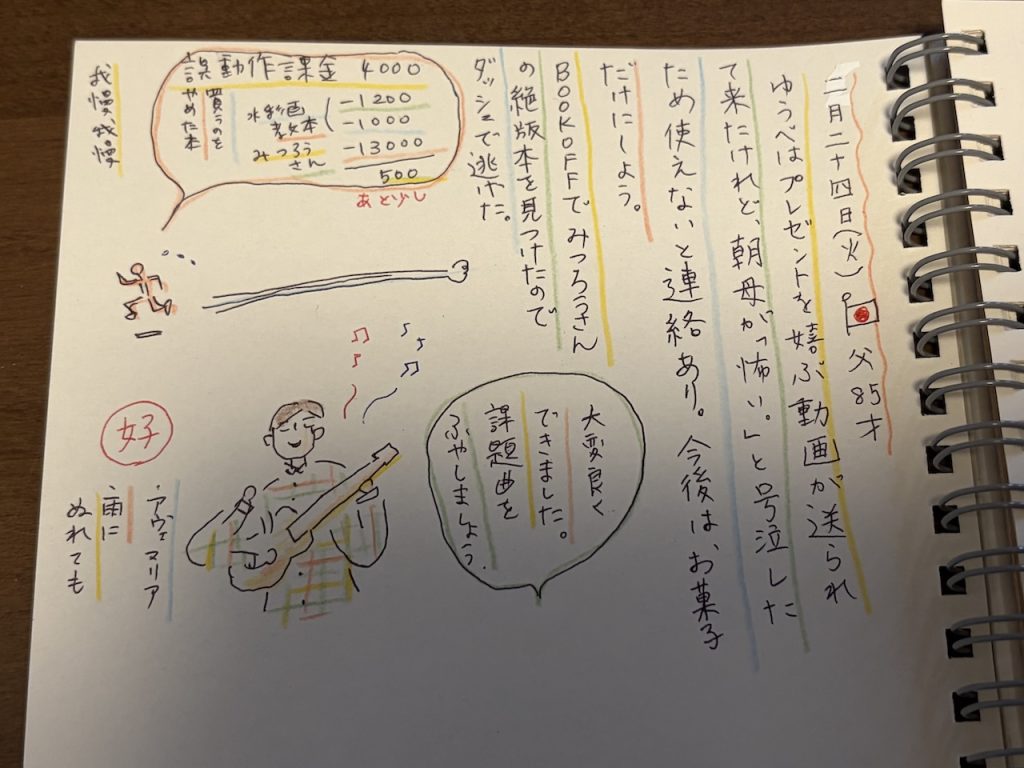 二月二十四日(火) 父85才
ゆうべはプレゼントを嬉ぶ動画が送られ
て来たけれど、朝母が「怖い。」と号泣した
ため使えないと連絡あり。今後はお菓子
だけにしよう。
BOOKOFFでみつろうさん
の絶版本を見つけたので
ダッシュで逃げた。
誤動作課金 4000
買うのを
やめた本
水彩画
教本
-1200
-1000
みつろう
さん
-13000
500
あと少し
我慢我慢
大変良く
できました。
課題曲を
ふやしましょう。
好
・アヴェマリア
・雨に
ぬれても